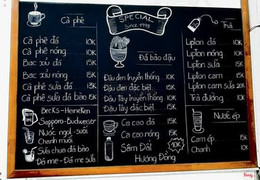 Cà phê
Cà phê đá 10K
Cà phê nóng 10K
Bạc xỉu đá 15K
Bạc xỉu nóng 15K
Cà phê sữa đá 15K
Cà phê sữa dá bào 15K
Becks - Heineken
Sapporo - Budweiser
Nước ngọt - suối
Chanh muối
Sữa chua đá bào
Đá me - Đá mè sữa
SPECIAL
SINCE 1998
Đá bào đậu
Đậu đen truyền thống 10K
Đậu đen đặc biệt
Đậu Tây truyền thống
Đậu Tây đặc biệt
Ca cao đá 15K
Ca cao nóng 15K
Sâm Dứt 10K
Hương Đồng
Trà
Lipton đá 10K
Lipton nóng 10K
Lipton sữa 15K
Lipton cam 15K
Lipton cam sữa 20K
Trà đường
Nước ép
Cam ép 15K
Chanh 10K